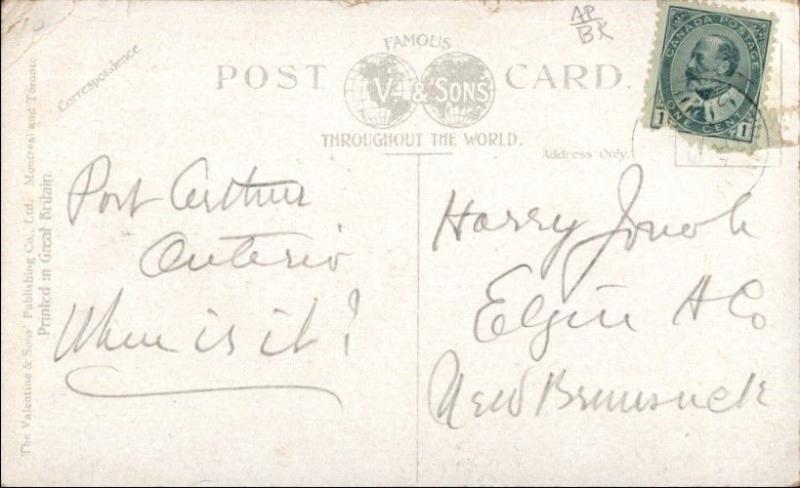 AP
BK
FAMOUS
POST CARD.
V & SONS
THROUGHOUT THE WORLD.
Correspondence
Address Only.
CANADA POSTAGE
1 ONE CENT 1
The Valentine & Sons' Publishing Co., Ltd. Montreal and Toronto.
Printed in Great Britain.
Port Arthur
Ontario
When is it?
Harry
Elgin A Co
New Brunswick